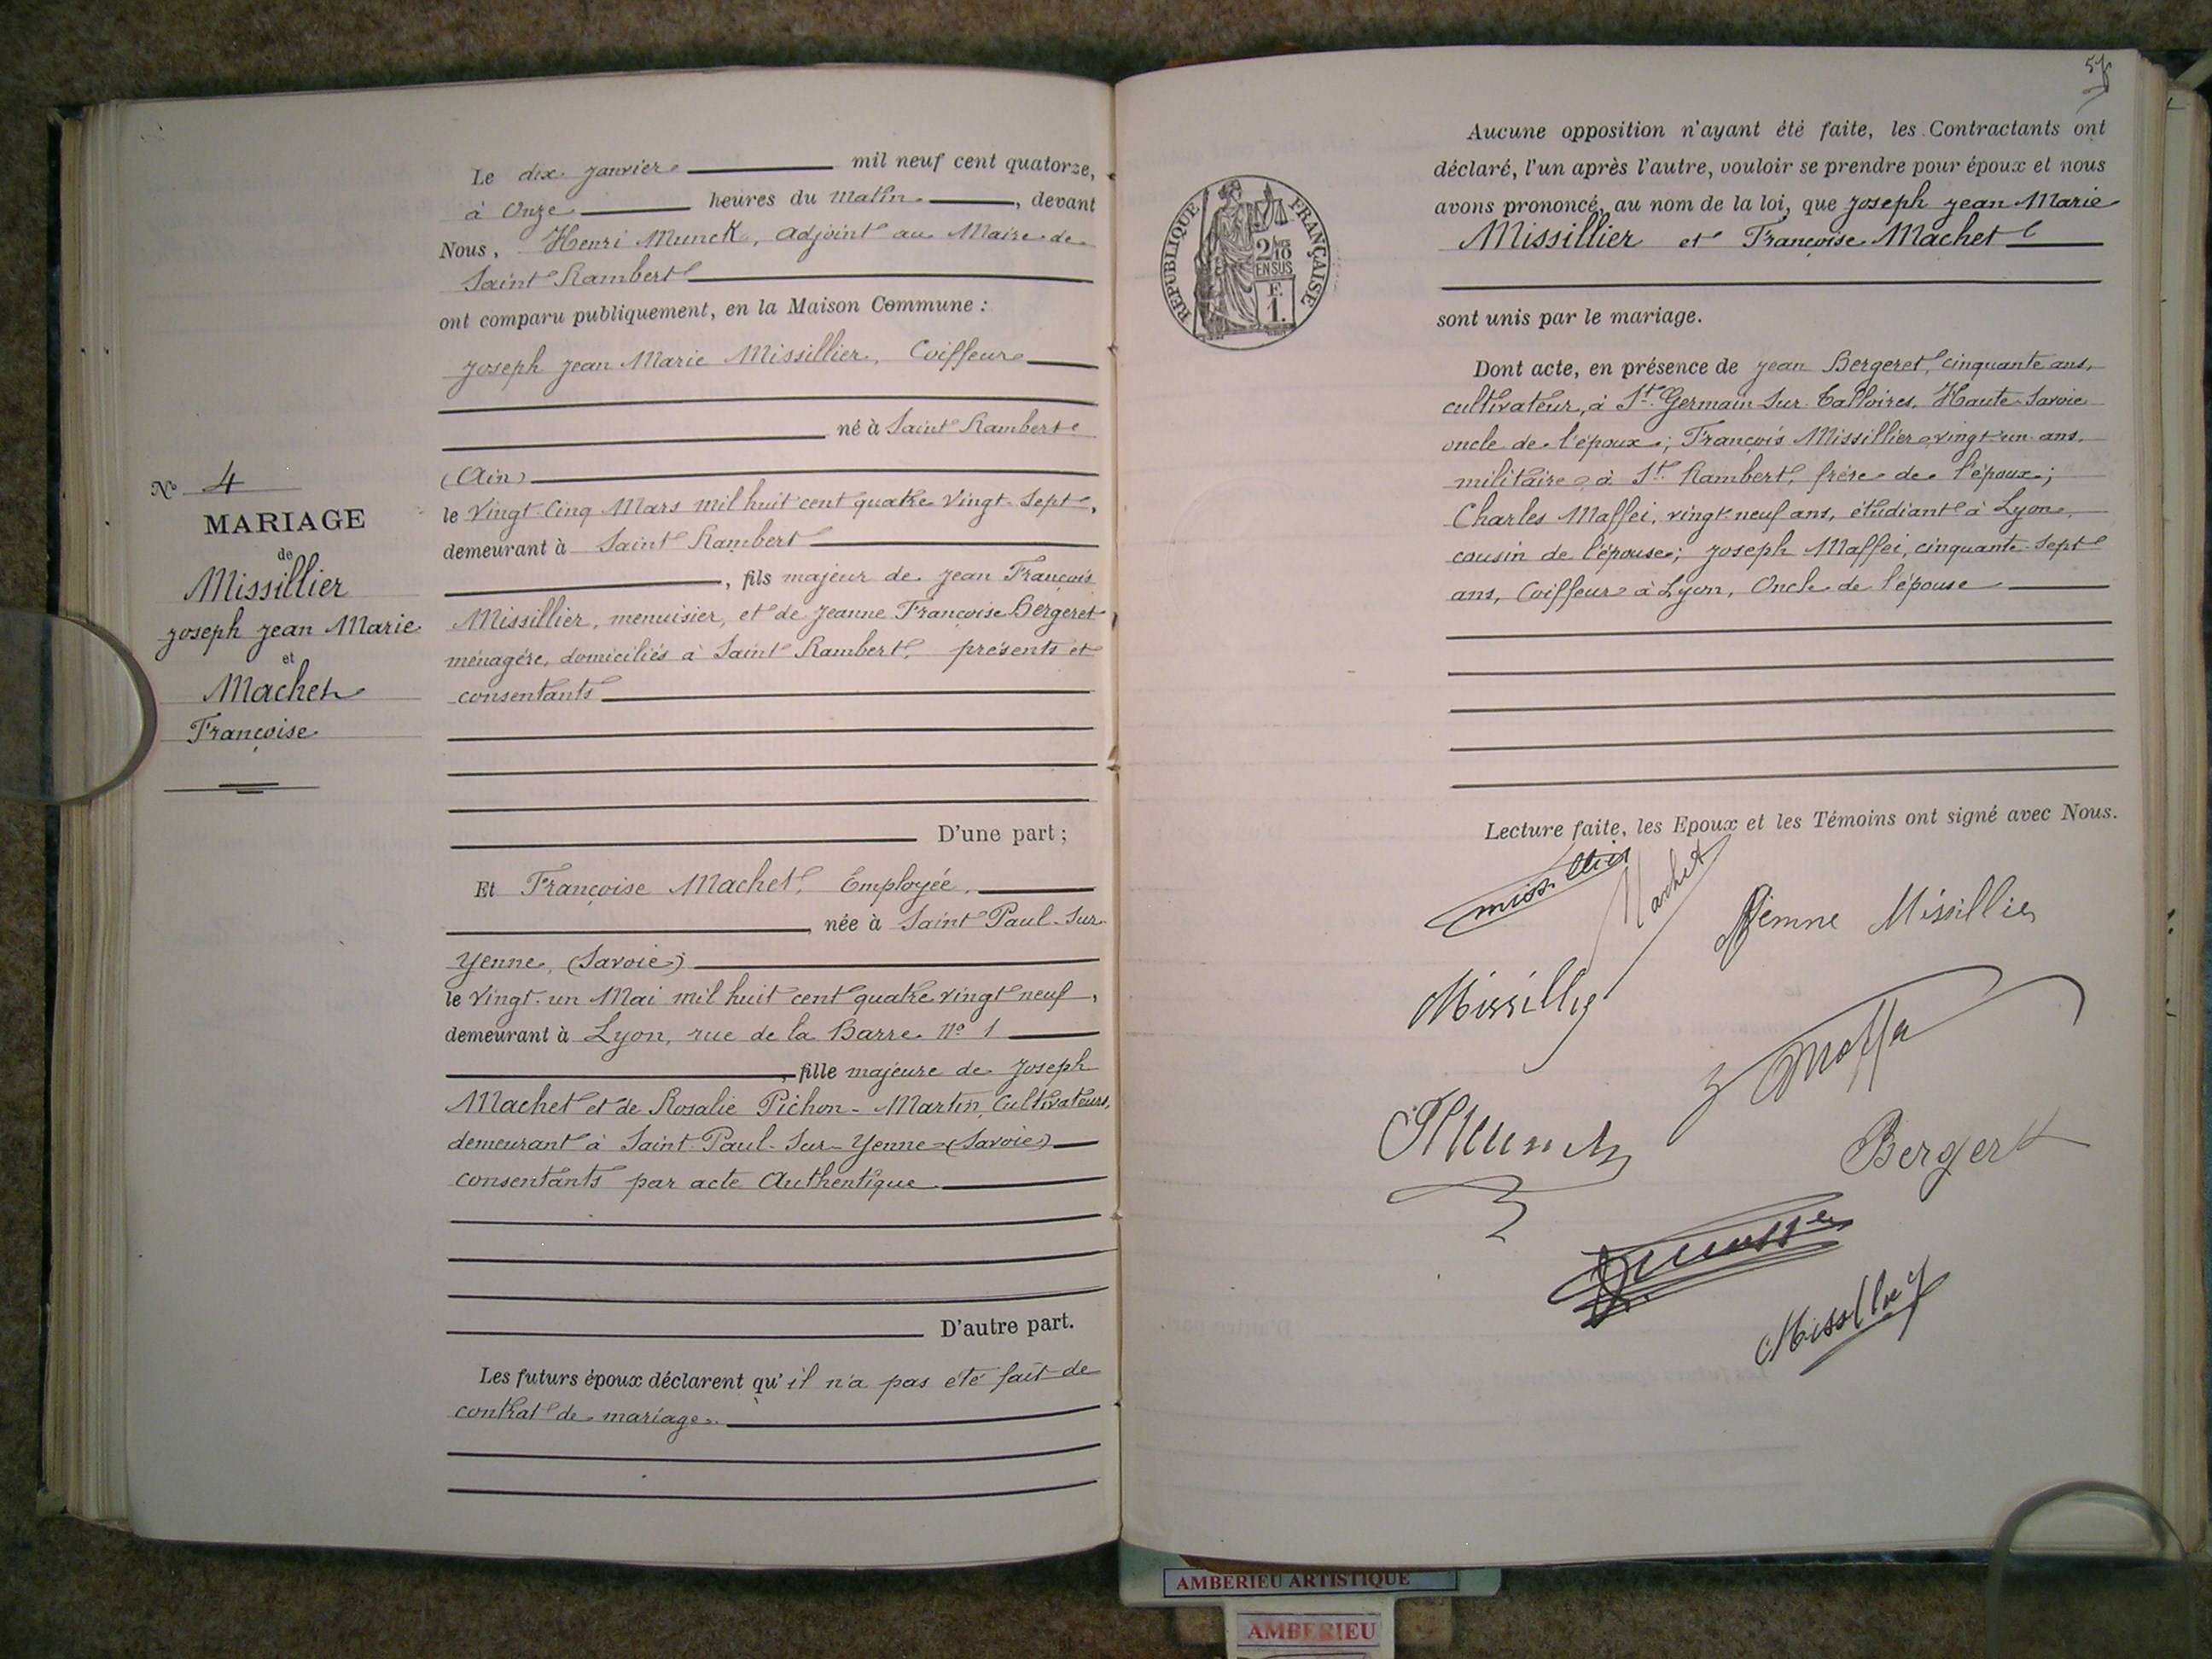 Le dix janvier mil neuf cent quatorze,
à Onze heures du matin, devant
Nous, Henri Munck, adjoint au Maire de
Saint Rambert
ont comparu publiquement, en la Maison Commune :
Joseph Jean Marie Missillier, Coiffeur
né à Saint Rambert
(Ain)
le Vingt-Cinq Mars mil huit cent quatre Vingt-Sept,
demeurant à Saint Rambert
, fils majeur de Jean François
Missillier, menuisier, et de Jeanne Françoise Bergeret
ménagère, domiciliés à Saint Rambert, présents et
consentants
D'une part ;
Et Françoise Machet, Employée,
, née à Saint Paul-Sur-
Yenne, (Savoie)
le Vingt-un Mai mil huit cent quatre vingt neuf,
demeurant à Lyon, rue de la Barre Nº 1
, fille majeure de Joseph
Machet et de Rosalie Pichon-Martin, Cultivateurs,
demeurant à Saint-Paul-Sur-Yenne (Savoie)
consentants par acte Authentique.
D'autre part.
Les futurs époux déclarent qu'il n'a pas été fait de
contrat de mariage.
Nº 4
MARIAGE
de
Missillier
Joseph Jean Marie
et
Machet
Françoise
Aucune opposition n'ayant été faite, les Contractants ont
déclaré, l'un après l'autre, vouloir se prendre pour époux et nous
avons prononcé, au nom de la loi, que Joseph Jean Marie
Missillier et Françoise Machet
sont unis par le mariage.
Dont acte, en présence de Jean Bergeret, cinquante ans,
cultivateur, à St. Germain Sur Talloires, Haute-Savoie
oncle de l'époux ; François Missillier, vingt-un ans,
militaire à St. Rambert, frère de l'époux ;
Charles Maffei, vingt-neuf ans, étudiant à Lyon,
cousin de l'épouse ; Joseph Maffei, cinquante-sept
ans, Coiffeur à Lyon, Oncle de l'épouse
Lecture faite, les Epoux et les Témoins ont signé avec Nous.
Missillier
Machet
Missillier
Missillier
Munck
Bergeret
Missillier
REPUBLIQUE FRANÇAISE
2/10
EN SUS
F.
1.
AMBERIEU ARTISTIQUE
AMBERIEU